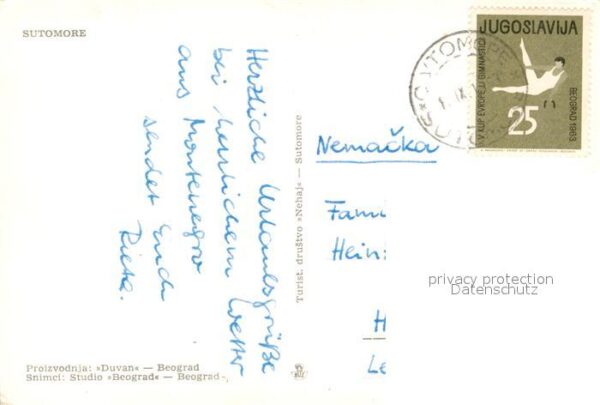 SUTOMORE
Herzliche Urlaubsgrüße
bei herrlichem Wetter
aus Montenegro
sendet Euch
Proizvodnja: »Duvan« — Beograd
Snimci: Studio »Beograd« — Beograd
Turist. društvo »Nehaj« — Sutomore
JUGOSLAVIJA
IV KUP EVROPE U GIMNASTICI
BEOGRAD 1963
25
СУТОМОРЕ
Nemačka
Fami
Hein
H
Le
privacy protection
Datenschutz